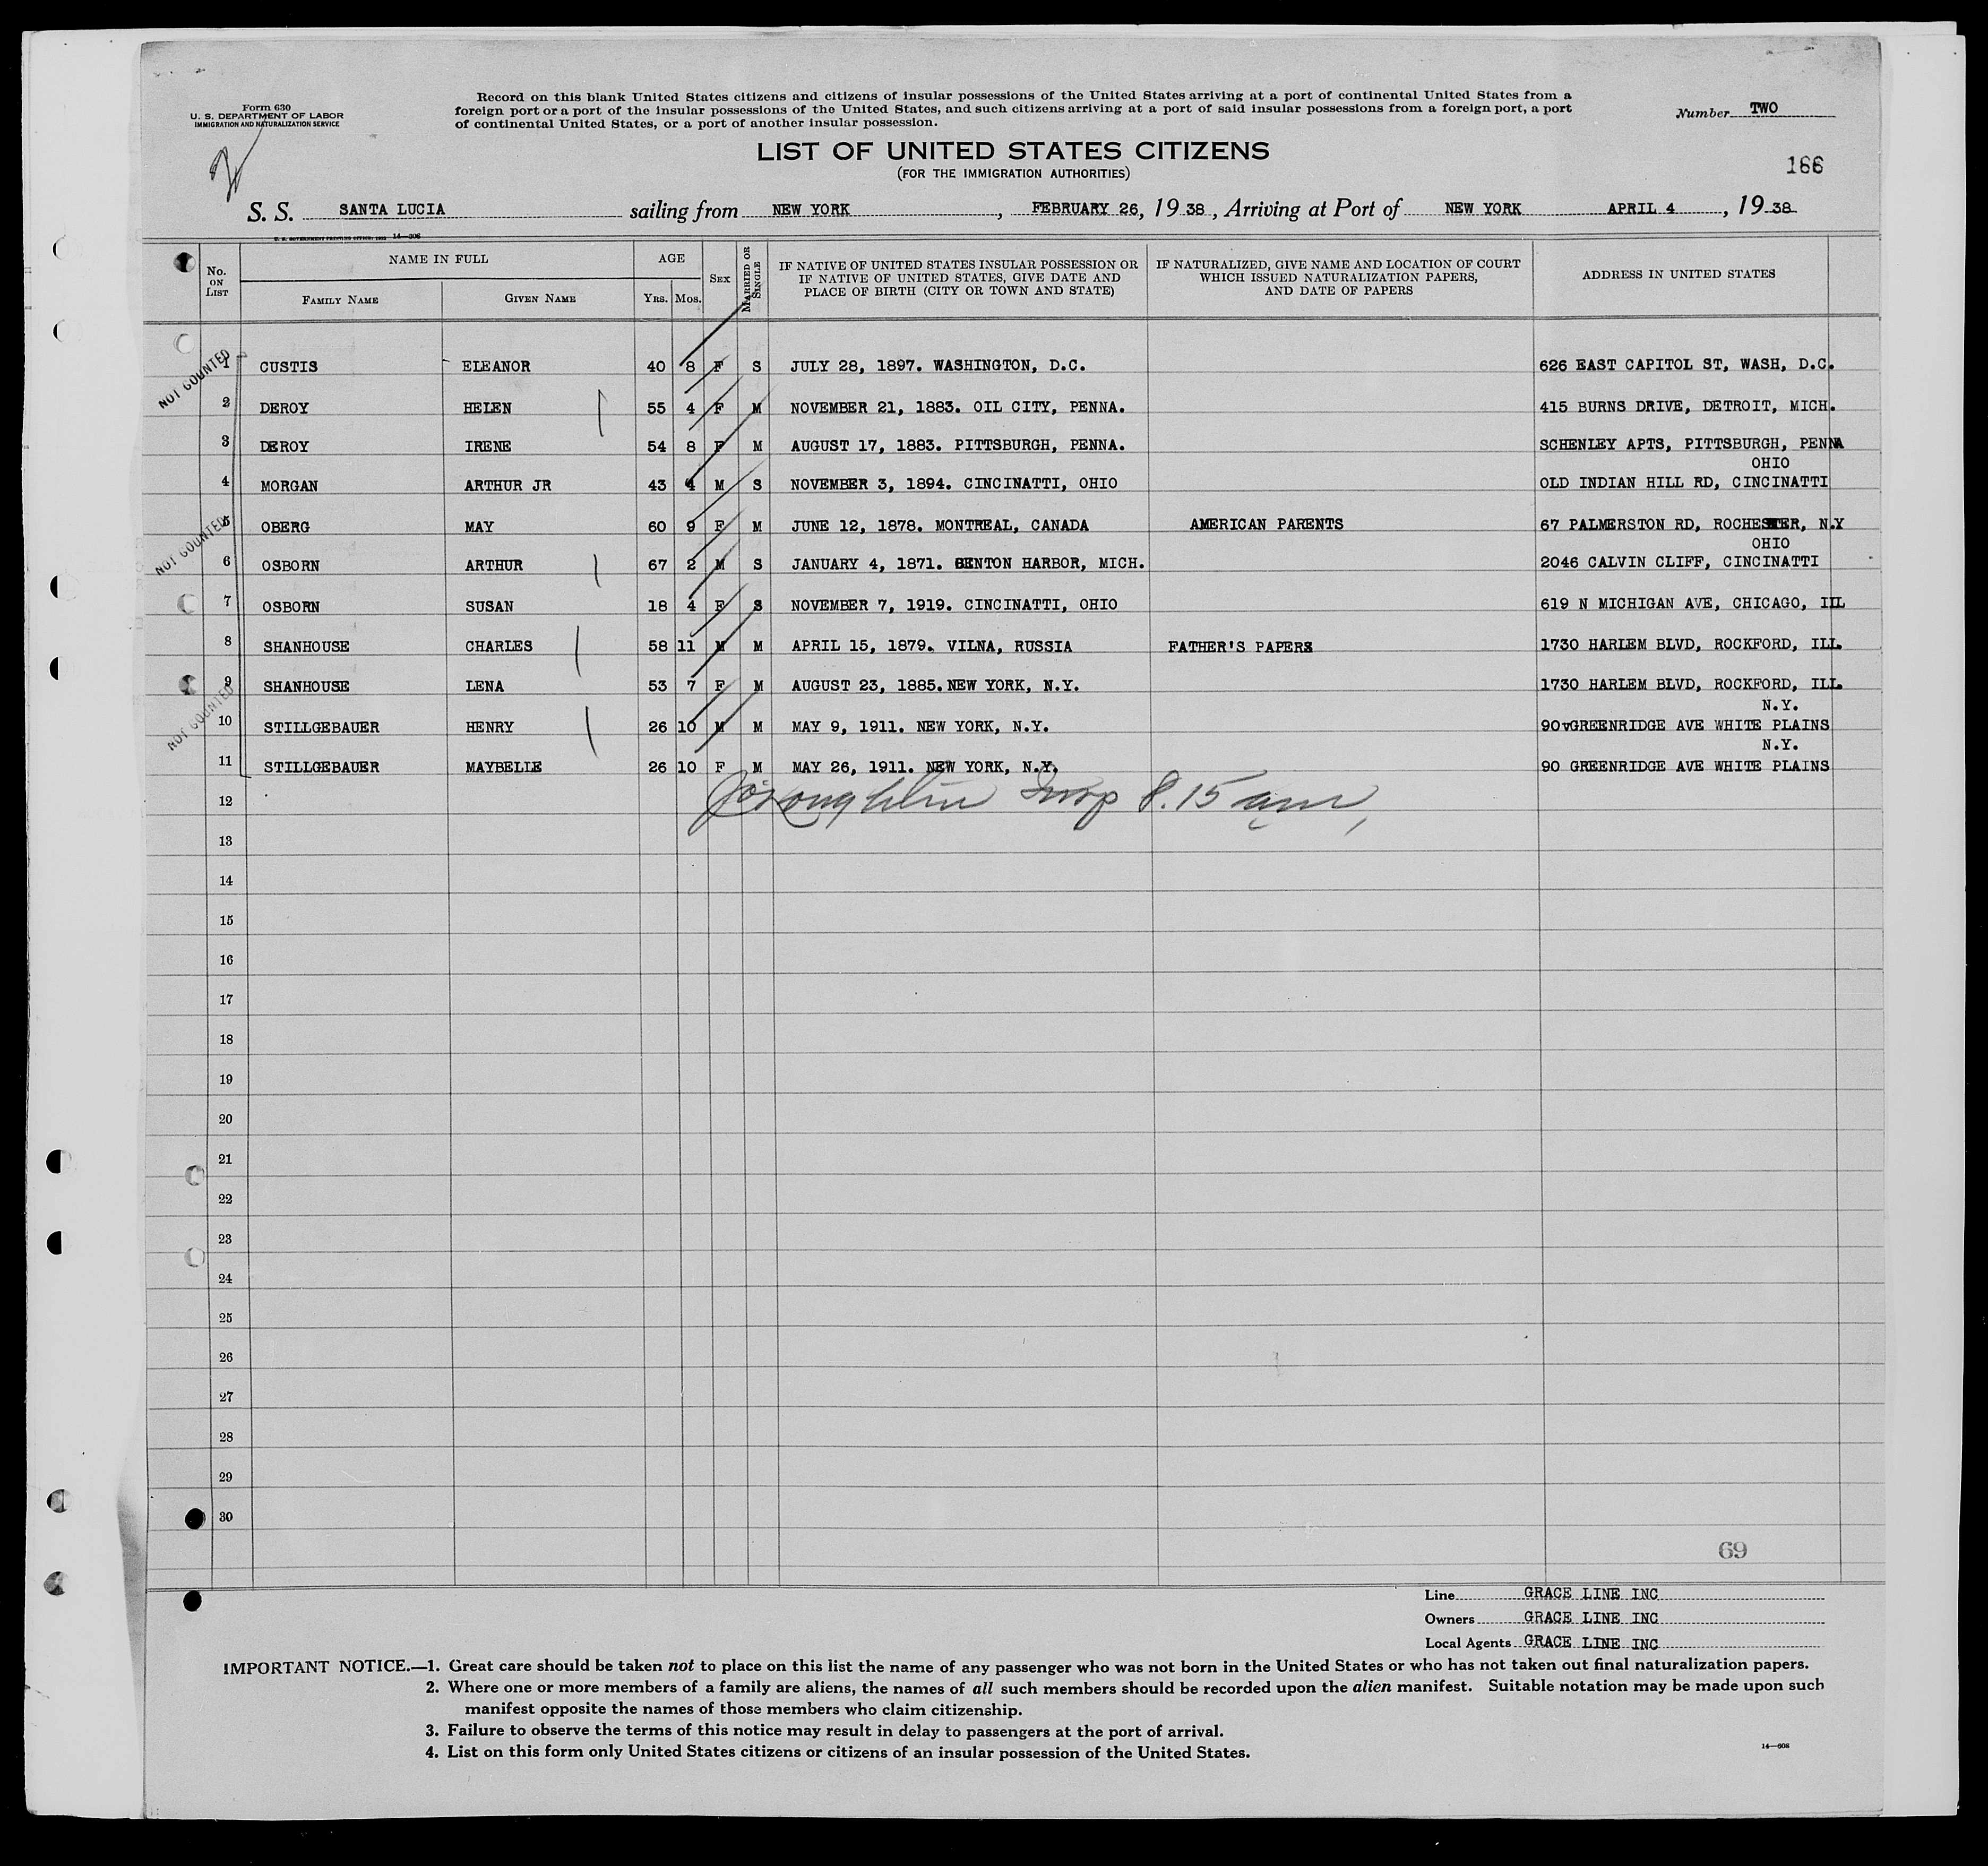 Form 630
U. S. DEPARTMENT OF LABOR
IMMIGRATION AND NATURALIZATION SERVICE
Record on this blank United States citizens and citizens of insular possessions of the United States arriving at a port of continental United States from a
foreign port or a port of the insular possessions of the United States, and such citizens arriving at a port of said insular possessions from a foreign port, a port
of continental United States, or a port of another insular possession.
Number TWO
LIST OF UNITED STATES CITIZENS
(FOR THE IMMIGRATION AUTHORITIES)
166
S. S. SANTA LUCIA sailing from NEW YORK, FEBRUARY 26, 19 38, Arriving at Port of NEW YORK APRIL 4, 19 38
No. ON LIST
NAME IN FULL
FAMILY NAME
GIVEN NAME
AGE
YRS. MOS.
SEX
MARRIED OR SINGLE
IF NATIVE OF UNITED STATES INSULAR POSSESSION OR
IF NATIVE OF UNITED STATES, GIVE DATE AND
PLACE OF BIRTH (CITY OR TOWN AND STATE)
IF NATURALIZED, GIVE NAME AND LOCATION OF COURT
WHICH ISSUED NATURALIZATION PAPERS,
AND DATE OF PAPERS
ADDRESS IN UNITED STATES
NOT COUNTED
1 CUSTIS ELEANOR 40 8 F S JULY 28, 1897. WASHINGTON, D.C. 626 EAST CAPITOL ST, WASH, D.C.
2 DEROY HELEN 55 4 F M NOVEMBER 21, 1883. OIL CITY, PENNA. 415 BURNS DRIVE, DETROIT, MICH.
3 DEROY IRENE 54 8 F M AUGUST 17, 1883. PITTSBURGH, PENNA. SCHENLEY APTS, PITTSBURGH, PENNA
OHIO
4 MORGAN ARTHUR JR 43 4 M S NOVEMBER 3, 1894. CINCINATTI, OHIO OLD INDIAN HILL RD, CINCINATTI
NOT COUNTED
5 OBERG MAY 60 9 F M JUNE 12, 1878. MONTREAL, CANADA AMERICAN PARENTS 67 PALMERSTON RD, ROCHESTER, N.Y
OHIO
6 OSBORN ARTHUR 67 2 M S JANUARY 4, 1871. BENTON HARBOR, MICH. 2046 CALVIN CLIFF, CINCINATTI
7 OSBORN SUSAN 18 4 F S NOVEMBER 7, 1919. CINCINATTI, OHIO 619 N MICHIGAN AVE, CHICAGO, ILL
8 SHANHOUSE CHARLES 58 11 M M APRIL 15, 1879. VILNA, RUSSIA FATHER'S PAPERS 1730 HARLEM BLVD, ROCKFORD, ILL.
9 SHANHOUSE LENA 53 7 F M AUGUST 23, 1885. NEW YORK, N.Y. 1730 HARLEM BLVD, ROCKFORD, ILL.
NOT COUNTED
N.Y.
10 STILLGEBAUER HENRY 26 10 M M MAY 9, 1911. NEW YORK, N.Y. 90vGREENRIDGE AVE WHITE PLAINS
N.Y.
11 STILLGEBAUER MAYBELLE 26 10 F M MAY 26, 1911. NEW YORK, N.Y. 90 GREENRIDGE AVE WHITE PLAINS
12 Insp 8.15 am,
13
14
15
16
17
18
19
20
21
22
23
24
25
26
27
28
29
30
69
Line GRACE LINE INC
Owners GRACE LINE INC
Local Agents GRACE LINE INC
IMPORTANT NOTICE.—1. Great care should be taken not to place on this list the name of any passenger who was not born in the United States or who has not taken out final naturalization papers.
2. Where one or more members of a family are aliens, the names of all such members should be recorded upon the alien manifest. Suitable notation may be made upon such
manifest opposite the names of those members who claim citizenship.
3. Failure to observe the terms of this notice may result in delay to passengers at the port of arrival.
4. List on this form only United States citizens or citizens of an insular possession of the United States.
14—608